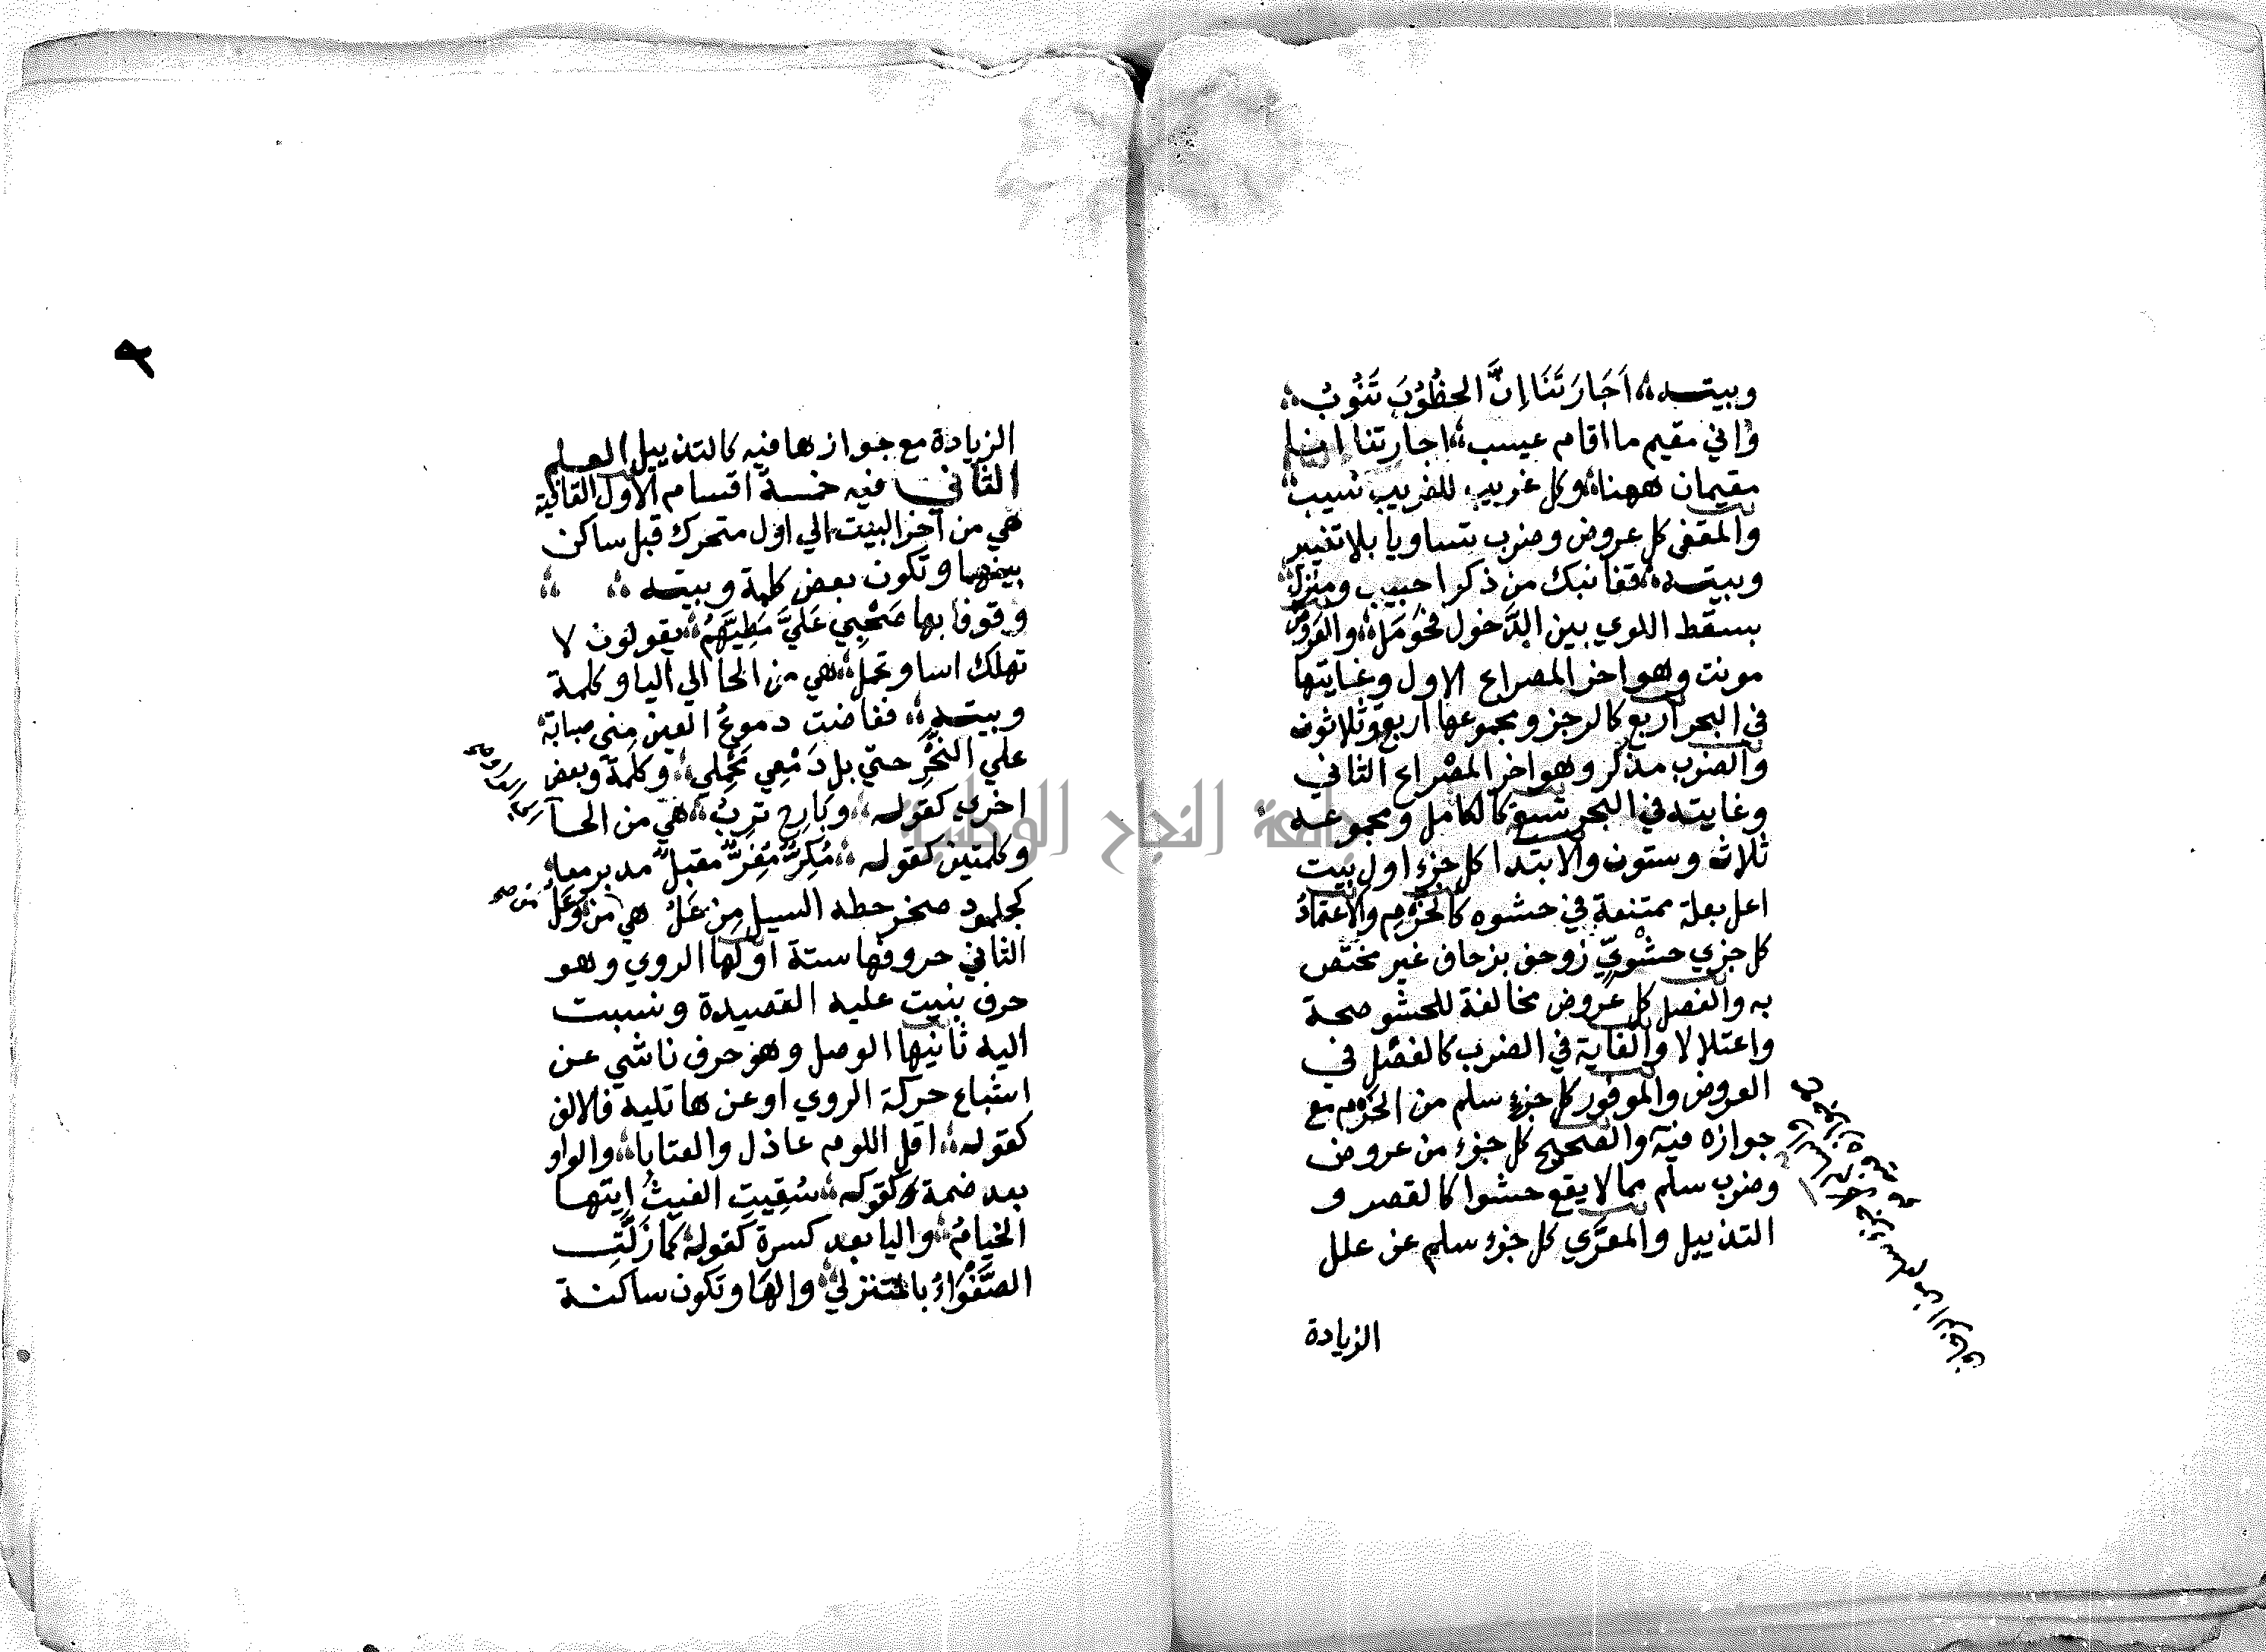 وبيتــه اَجَارَتَنَا اِنَّ الخطُوُبَ تَنُوُبُ
وَاِني مقيم ما اقام عيسب اجارتنا انــا
مقيمان ههنا وكل غريب للغريب نسيب
والمقفى كل عروض وضرب تساويا بلا تغيير
وبيتــه قفا نبك من ذكرا حبيب ومنزل
بسقط اللوي بين الدَّخول فحَومَل والعَروض
مونث وهو اخر المصراع الاول وغايتها
في البحر اربع كالرجز ومجموعها اربع وثلاثون
والضرب مذكر وهو اخر المصراع الثاني
وغايته في البحر تسعة كالكامل ومجموعــه
ثلاث وستون والابتدا كل جزء اول بيت
اعل بعلة ممتنعة في حشوه كالخَزم والاعتمادُ
كل جزء حشْويّ زوحف بزحاف غير مختص
به والفصل كل عروض مخالفة للحشو صحة
واعتلالا والغاية في الضرب كالفصل في
العروض والموفور كل جزء سلم من الخزم مع
جوازه فيه والصحيح كل جزء من عروض
وضرب سلم مما لا يقع حشوا كالقصر و
التذييل والمعرَّي كل جزء سلم عن علل
الزيادة
جامعة النجاح الوطنية
٩
الزيادة مع جوازها فيه كالتذييل العــلم
الثاني فيه خمسة اقسام الاول القافية
هي من آخر البيت الي اول متحرك قبل ساكن
بينهما وتكون بعض كلمة وبيتــه
وقوفا بها صَحْبِي عَليَّ مَطِيَّهُمُ يقولون لا
تهلك اسا وتحمل هي من الحا الي اليا وكلمة
وبيتــه ففاضت دموعُ العين مِني صبابة
علي النحْرِ حتي بل دَمْعِي مَحْمِلي وكلمة وبعض
اخري كقولــه وبَارِح تربُ هي من الحــا
وكلمتين كقولــه مُكِرٍّ مُفِرٍّ مقبل مدبر معا
كجلمود صخر حطه السيل مِن عَلُ هي من وعَلُ
الثاني حروفها ستة اولها الروي وهو
حرف بنيت عليه القصيدة ونسبت
اليه ثانيها الوصل وهو حرف ناشي عــن
اشباع حركة الروي او عن ها تليه فالالف
كقولــه اقل اللوم عاذل والعتابا والواو
بعد ضمة كقوله سُقِيتِ الغيثُ اِيتهــا
الخيامُ واليا بعد كسرة كقوله كما زَلَّتِــ
الصَّفْوَاءُ بالمتنزلي والهَا وتكون ساكنــة